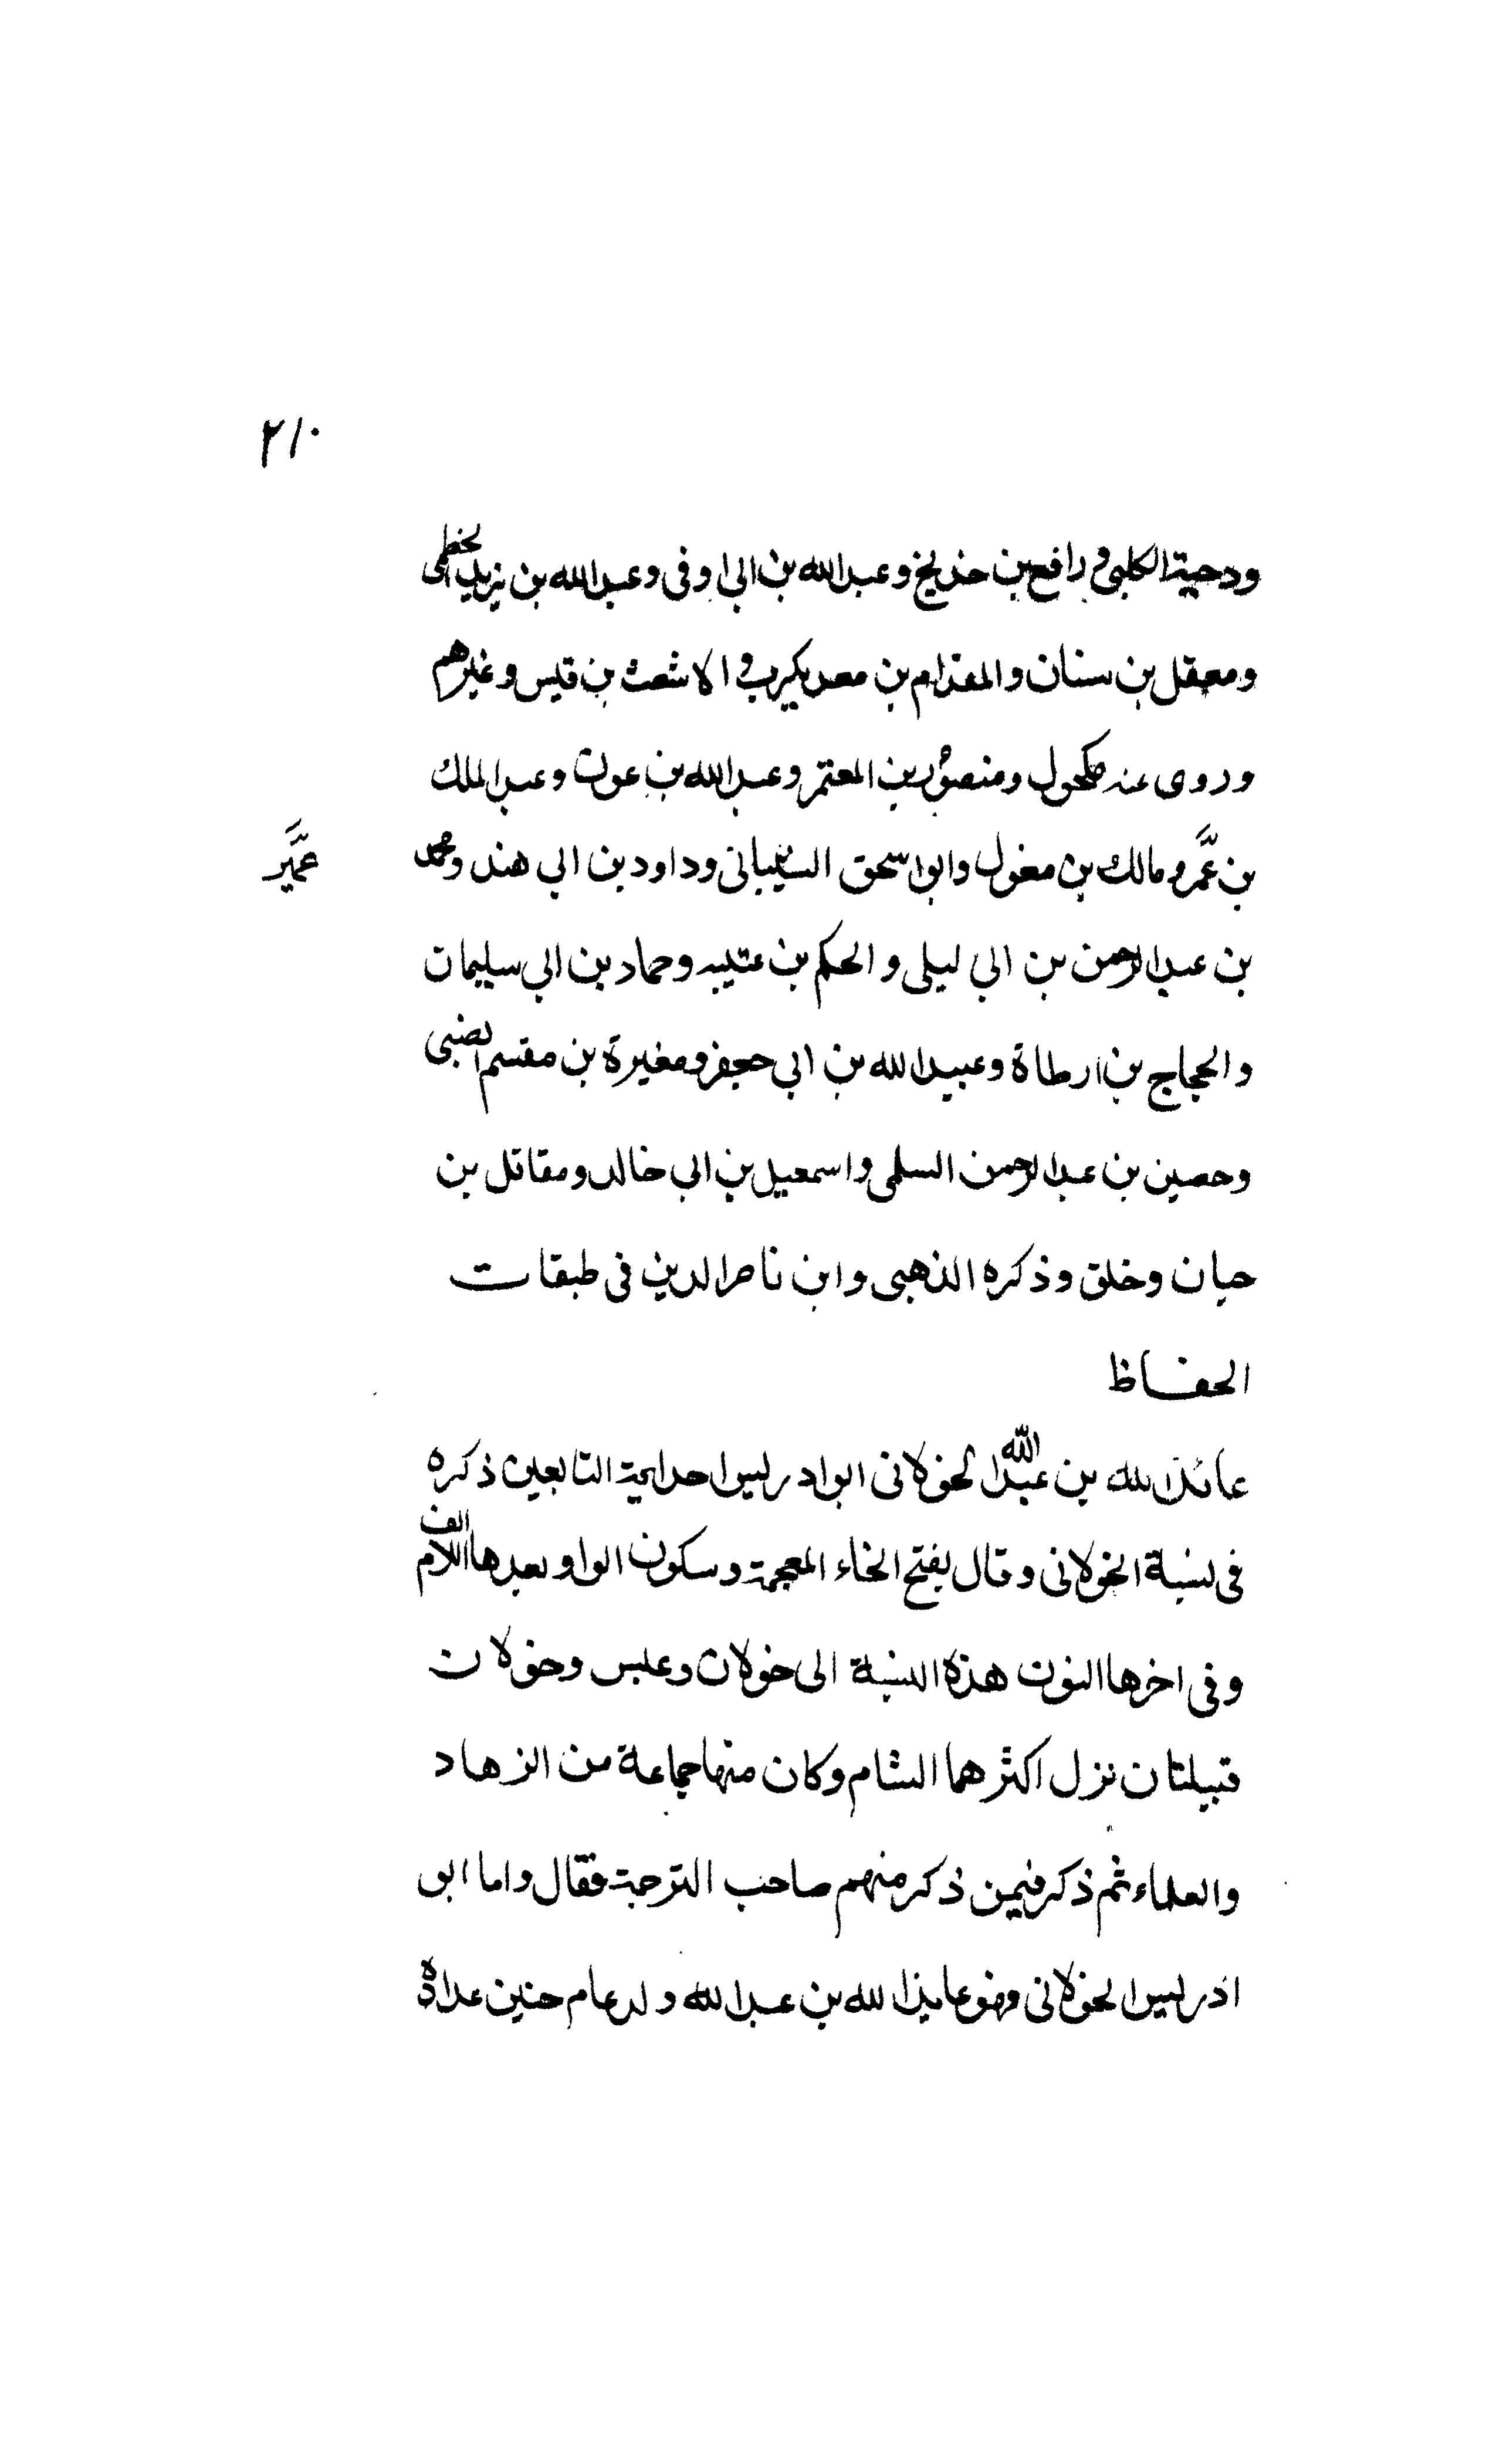 ٢١٠
ودحية الكلبي ورافع بن خديج وعبد الله بن ابي اوفى وعبد الله بن يزيد الخطمى
ومعقل بن سنان والمقدام بن معديكرب والاشعث بن قيس وغيرهم
وروى عنه مكحول ومنصور بن المعتمر وعبد الله بن عون وعبد الملك
بن عمرو مالك بن مغول وابو اسحق الشيباني وداود بن ابي هند ومحمد
عمير
بن عبد الرحمن بن ابي ليلى والحكم بن عتيبه وحماد بن ابي سليمان
والحجاج بن ارطاة وعبيد الله بن ابي جعفر ومغيرة بن مقسم الضبى
وحصين بن عبد الرحمن السلمى واسمعيل بن ابي خالد ومقاتل بن
حيان وخلق وذكره الذهبى وابن ناصر الدين في طبقات
الحفاظ
عائذ الله بن عبد الله الخولانى ابو ادريس احد ايمة التابعين ذكره
في نسبة الخولانى وقال بفتح الخاء المعجمة وسكون الواو بعدها اللام الف
وفي اخرها النون هذه النسبة الى خولان وعبس وخولان
قبيلتان نزل اكثرهما الشام وكان منها جماعة من الزهاد
والعلماء ثم ذكر فيمن ذكر منهم صاحب الترجمة فقال واما ابو
ادريس الخولانى وهو عايذ الله بن عبد الله ولد عام حنين عداده